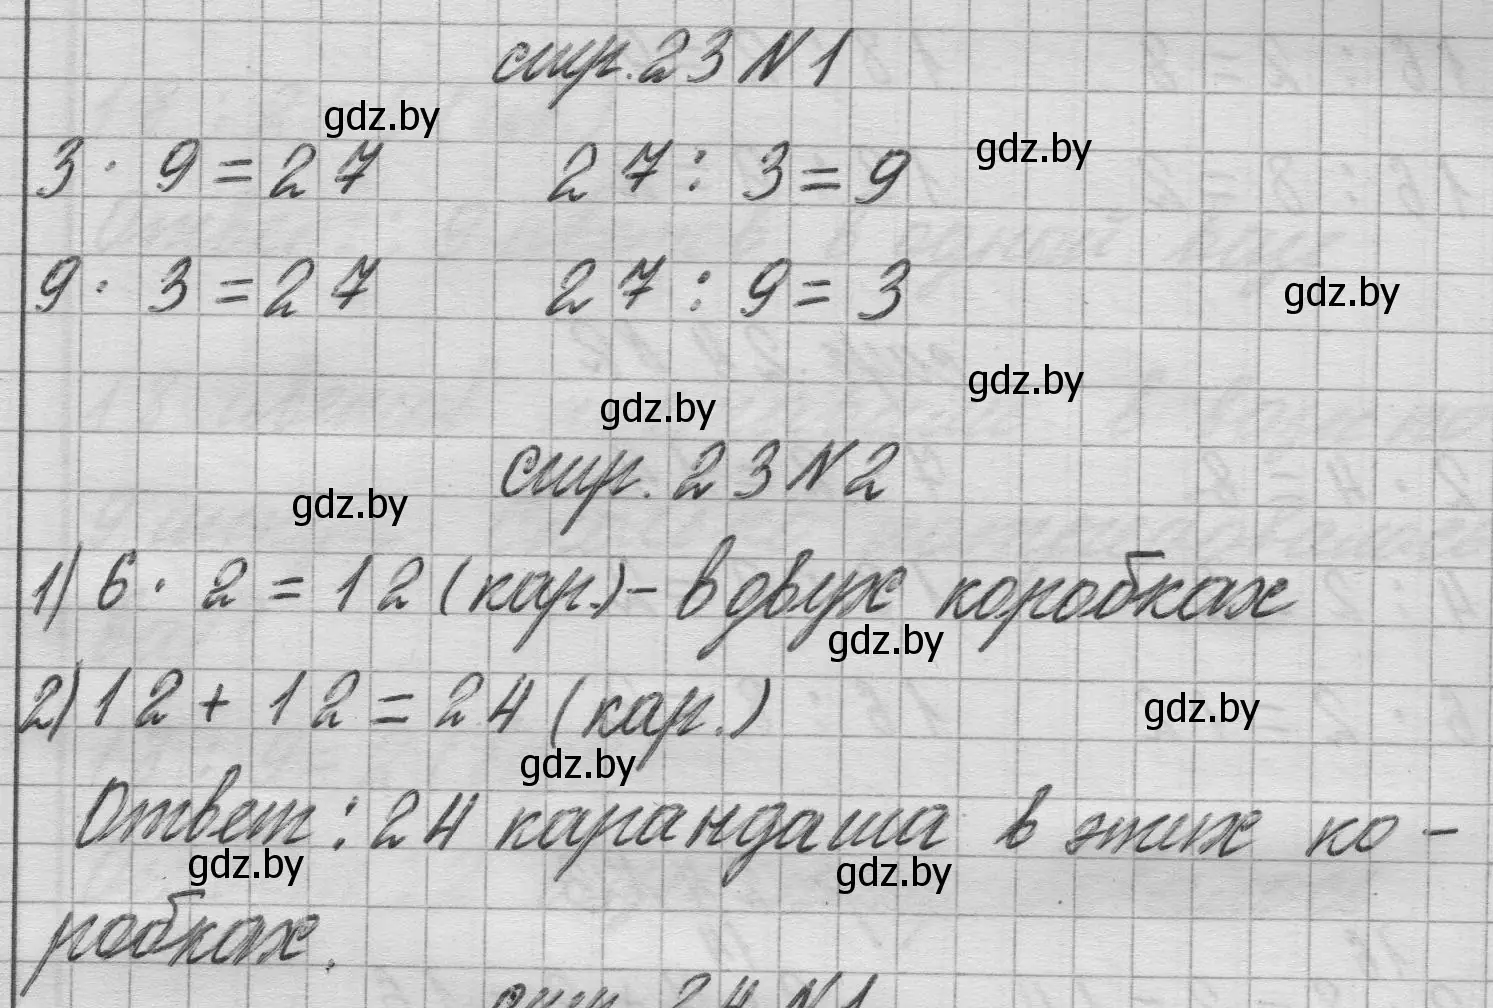 стр. 23 N 1
gdz.by
3 · 9 = 27 27 : 3 = 9 gdz.by
9 · 3 = 27 27 : 9 = 3 gdz.by
gdz.by
gdz.by
стр. 23 N 2
gdz.by
1) 6 · 2 = 12 (кар.) - в двух коробках
gdz.by
2) 12 + 12 = 24 (кар.) gdz.by
gdz.by
Ответ: 24 карандаша в этих ко-
gdz.by gdz.by
робках.
стр. 24 N 1